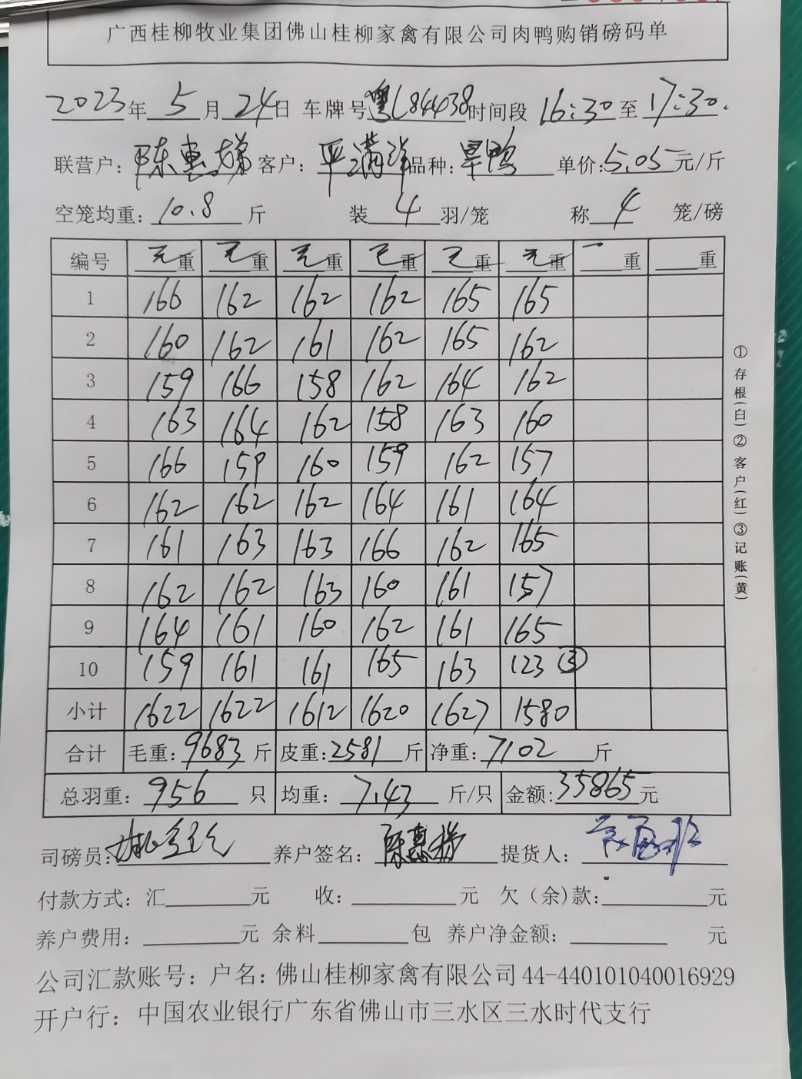 广西桂柳牧业集团佛山桂柳家禽有限公司肉鸭购销磅码单
2023年5月24日 车牌号粤L84438时间段 16:30至17:30.
联营户:陈惠娣 客户:严满祥品种:旱鸭 单价:5.05元/斤
空笼均重:10.8斤 装4羽/笼 称4笼/磅
编号 毛重 毛重 毛重 毛重 毛重 毛重 重 重
1 166 162 162 162 165 165
2 160 162 161 162 165 162
3 159 166 158 162 164 162
4 163 164 162 158 163 160
5 166 159 160 159 162 157
6 162 162 162 164 161 164
7 161 163 163 166 162 165
8 162 162 163 160 161 157
9 164 161 160 162 161 165
10 159 161 161 165 163 123 ③
小计 1622 1622 1612 1620 1627 1580
合计 毛重:9683斤 皮重:2581斤 净重:7102斤
总羽重:956只 均重:7.43斤/只 金额:35865元
司磅员: 养户签名:陈惠娣 提货人:
付款方式:汇 元 收: 元 欠(余)款: 元
养户费用: 元 余料 包 养户净金额: 元
公司汇款账号:户名:佛山桂柳家禽有限公司44-440101040016929
开户行:中国农业银行广东省佛山市三水区三水时代支行
①存根(白)②客户(红)③记账(黄)